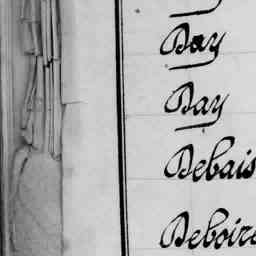 Day
Day
Debais
Deboire